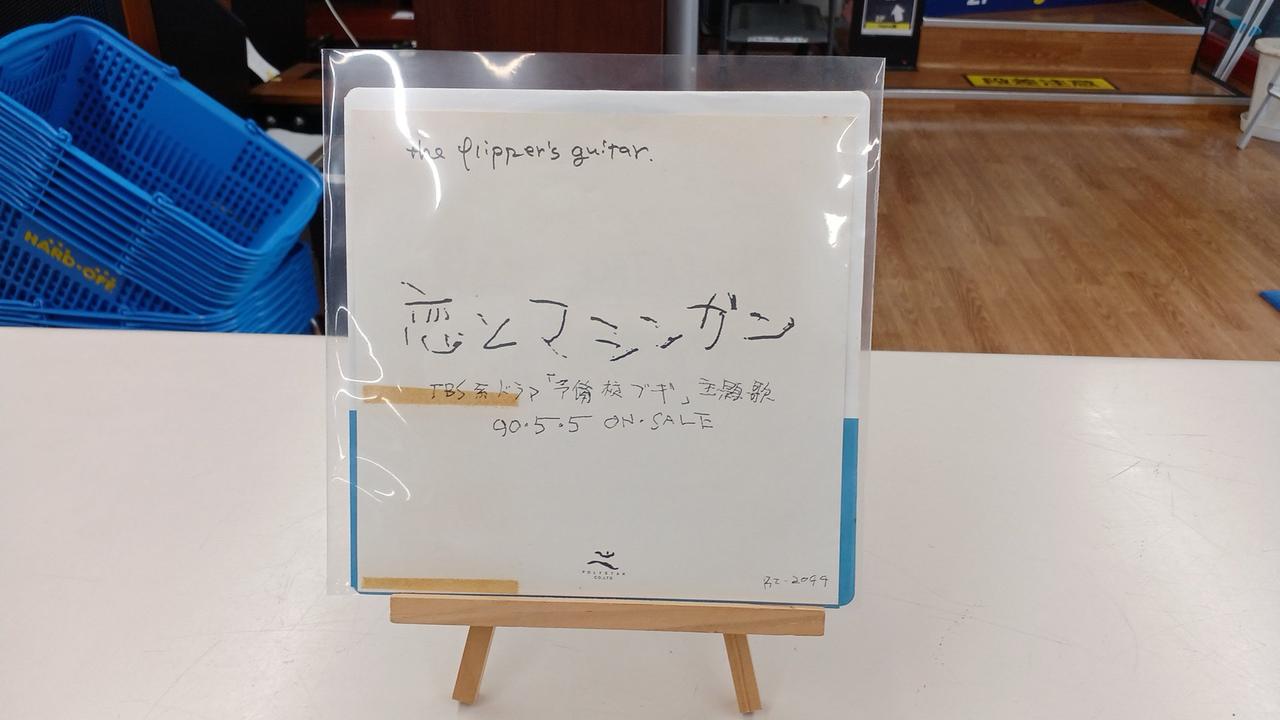 段差注意
HARD・OFF
the flipper's guitar.
恋とマシンガン
TBS系ドラマ「予備校ブギ」主題歌
90・5・5 ON・SALE
POLYSTAR
CO.,LTD.